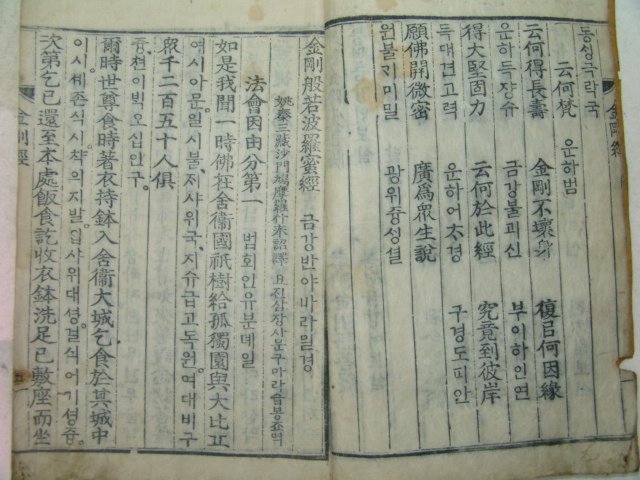 동싱극락국
云何梵 운하범
云何得長壽 金剛不壞身 復以何因緣
운하득쟝슈 금강불괴신 부이하인연
得大堅固力 云何於此經 究竟到彼岸
득대견고력 운하어ᄎᆞ경 구경도피안
願佛開微密 廣爲衆生說
원불ᄀᆡ미밀 광위즁ᄉᆡᆼ셜
金剛經
金剛般若波羅蜜經 금강반야바라밀경
姚秦三藏沙門鳩摩羅什奉詔譯 요진삼장사문구마라습봉죠역
法會因由分第一 법회인유분뎨일
如是我聞一時佛在舍衛國祇樹給孤獨園與大比丘
여시아문일시불ᄌᆡ샤위국기슈급고독원여대비구
衆千二百五十人俱
즁쳔이ᄇᆡᆨ오십인구
爾時世尊食時著衣持鉢入舍衛大城乞食於其城中
이시셰존식시챡의지발입샤위대셩걸식어기셩즁
次第乞已還至本處飯食訖收衣鉢洗足已敷座而坐
金剛經